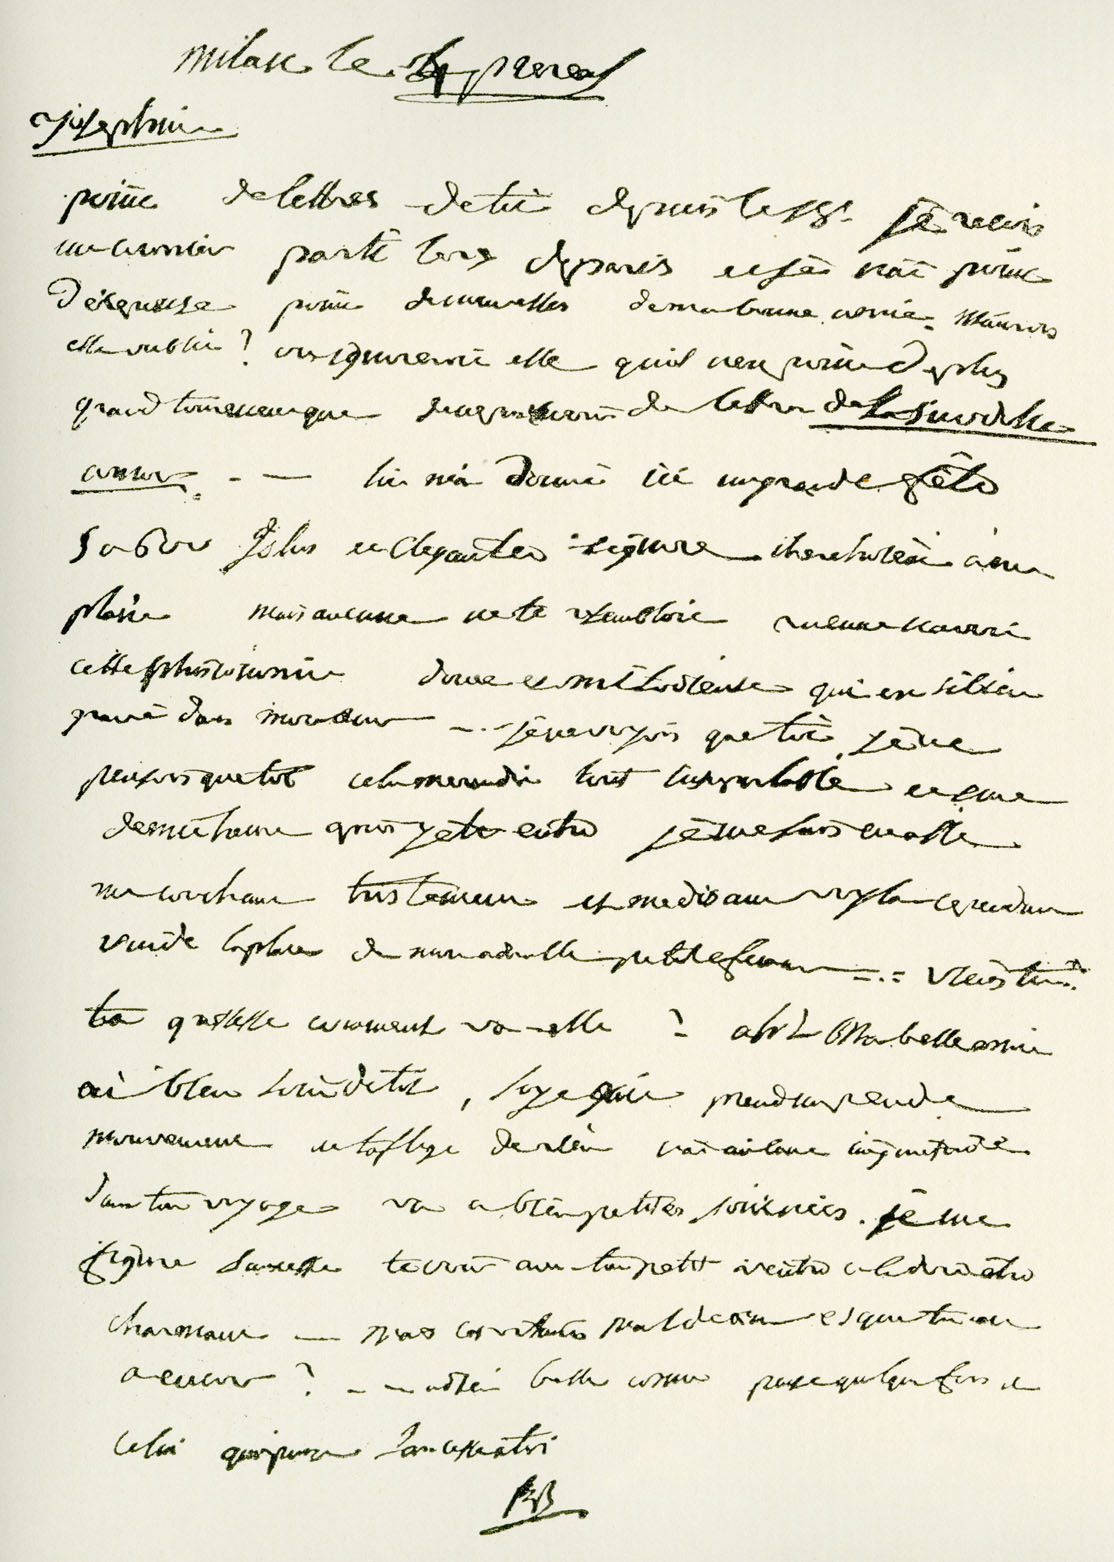 milan le 4 prereal
Josephine
point de lettres de toi depuis le 28. je recois
un courier partit le 27 de paris et je nai point
de reponse point de nouvelles de ma bonne amie. m'auroi
elle oublié? ou ignoreroit elle quil nen point de plus
grand tourment que de de lettre de la s mio dolce
amor. - — lon m'a donné ici un grande fête
5 ou 6 jolies et elegantes figure cherchoient à me
plaire mais aucune ne te resembloit aucune navoit
cette phisionomie douce et melodieuse qui est si bien
gravé dans mon coeur —. je ne voyois que toi je ne
pensois que toi cela me rendi tout insuportable et une
demie heure apres y etre entré je me suis en allé
me couchant tristement et me disant voyla cependant
vuide la place de mon adorable petite femme =.= viens tu ?
ta grossesse comment va-elle ? ah ! ma belle amie
ai bien soin de toi, soye gaie prend un peu de
mouvement ne t'aflige de rien nai aucune inquietude
dans ton voyage va a bien petites journées. je me
figure sans cesse te voir avec ton petit ventre cela doit etre
charmant — mais ces vilains mal de coeur est que tu en
a encore ? - — adieu belle amie pense quelque fois a
celui qui pense sans cesse à toi
BP